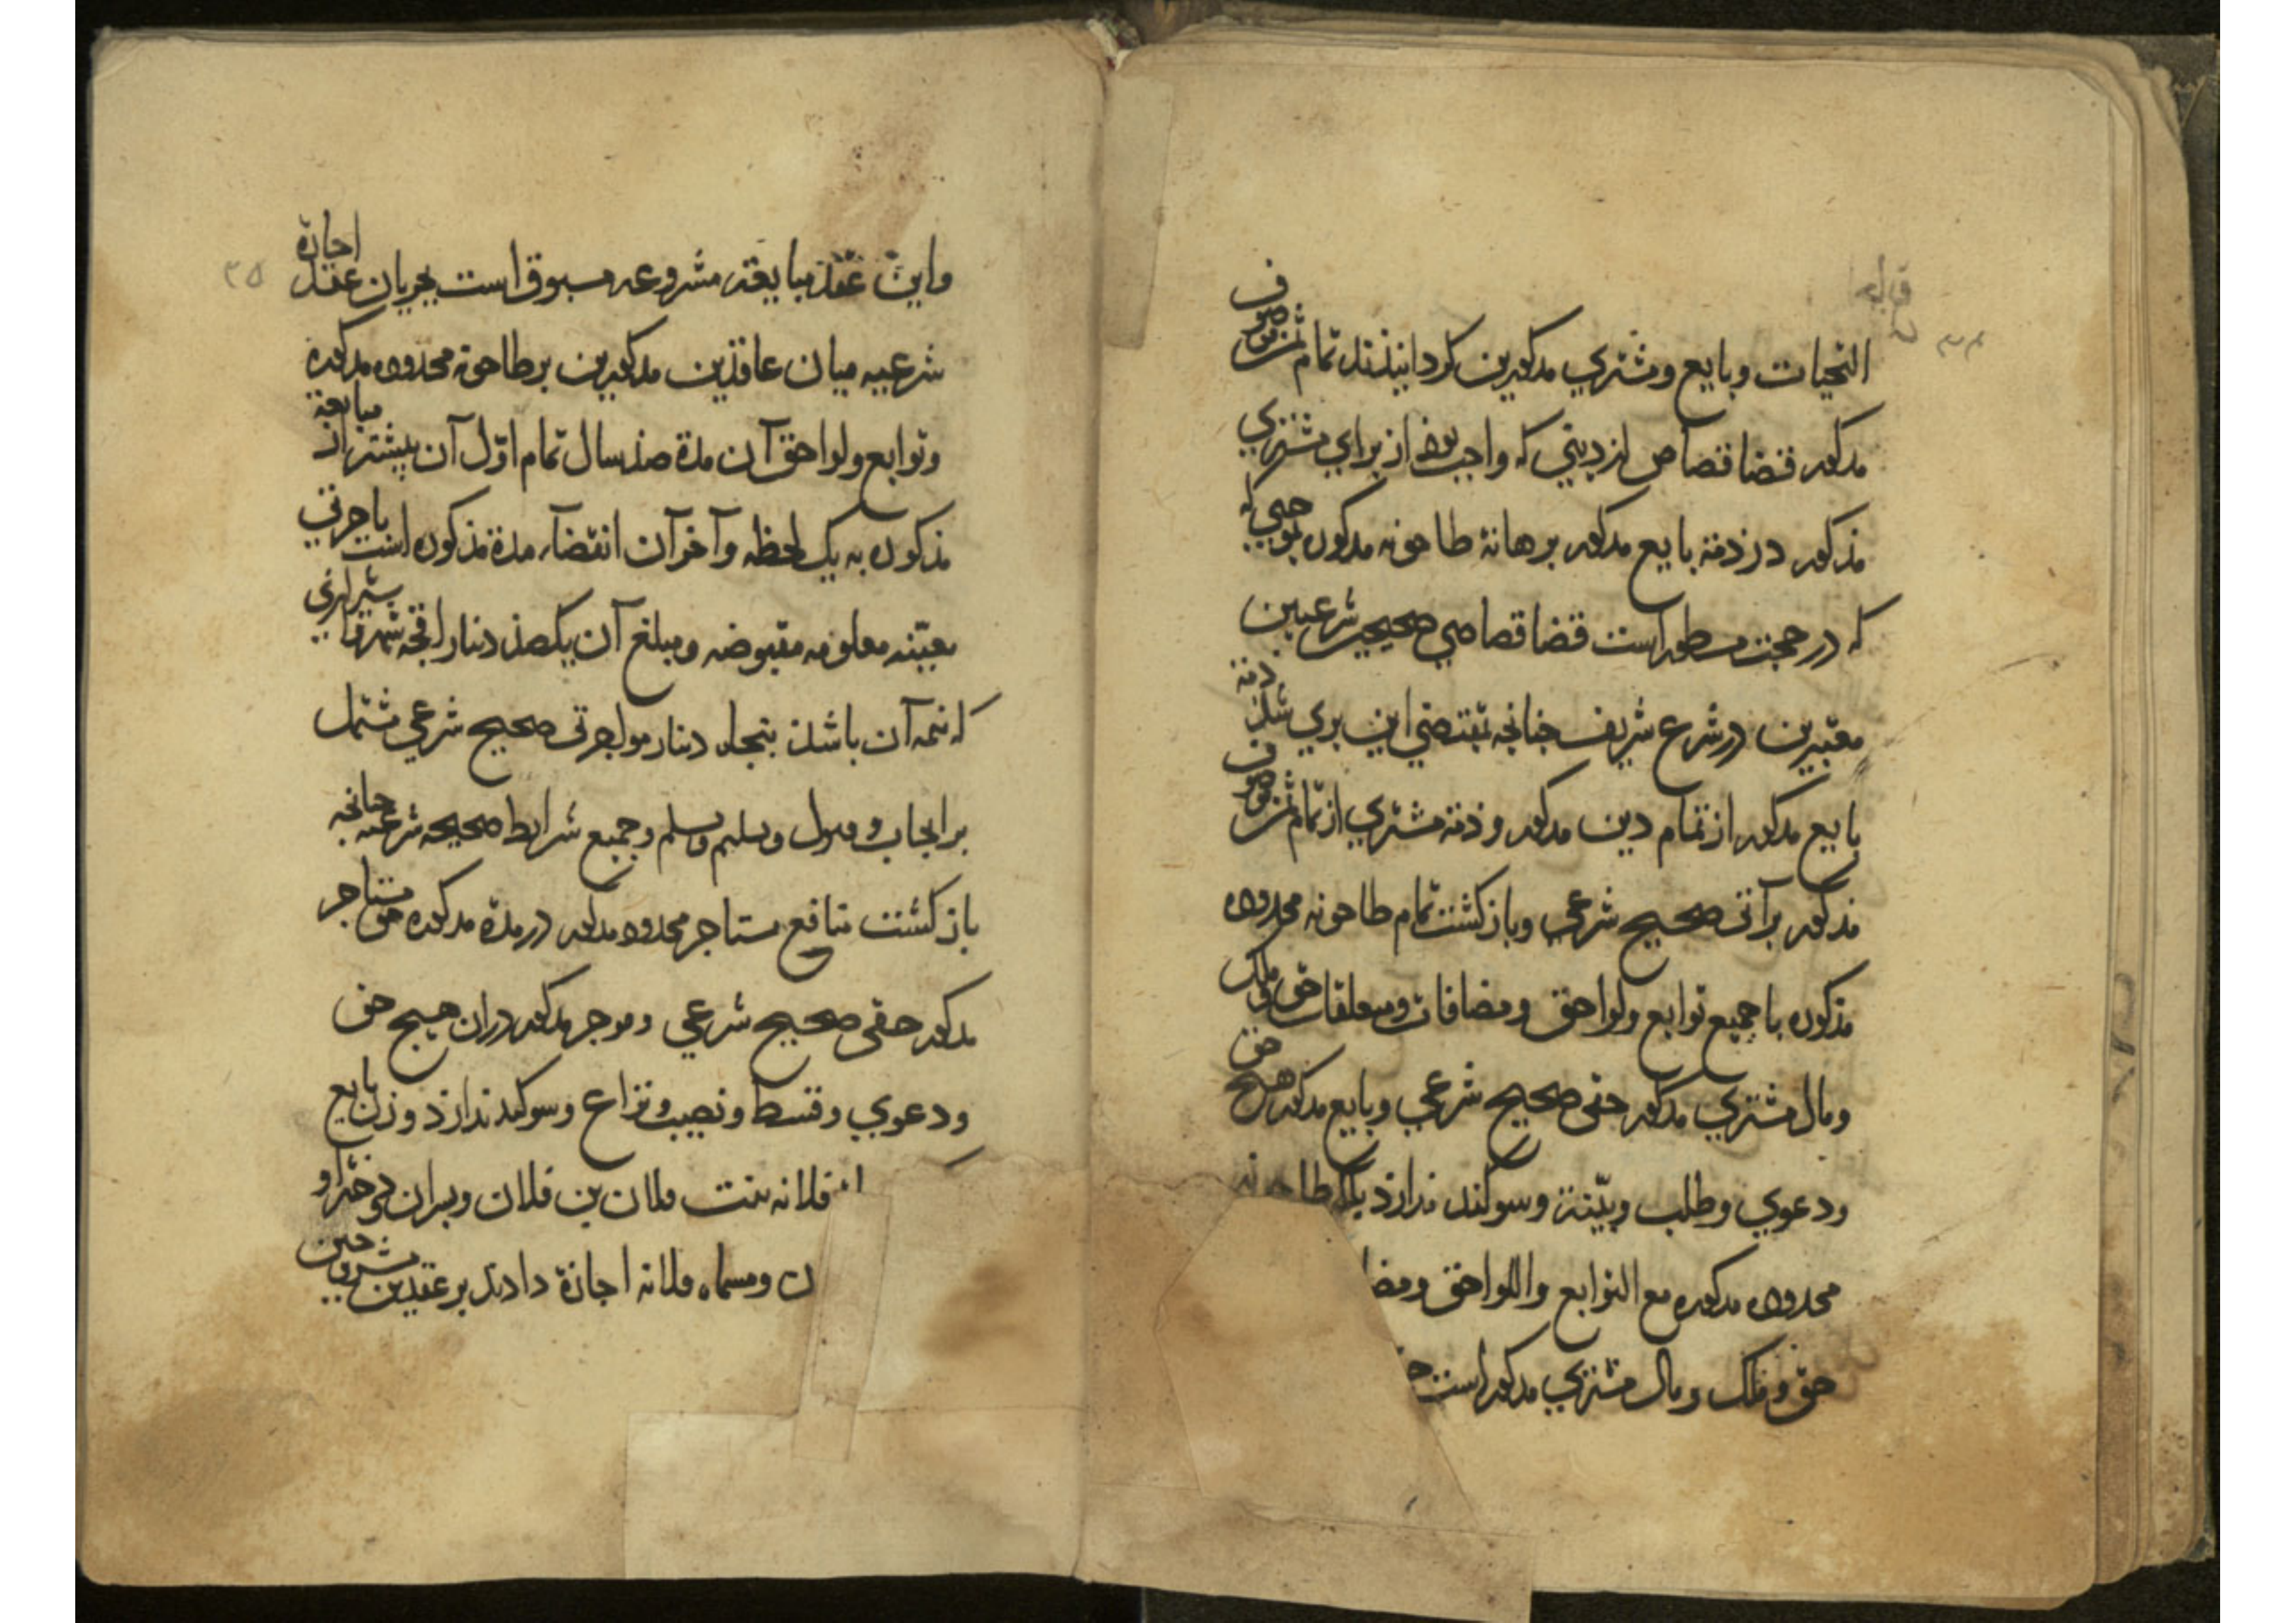 قباله
۳۴
التحیات و بایع و مشتری مذکورین کردانیذند تمام ثمن موصوف
مذکور قضا قصاص از دینی که واجب بوذ از برای مشتری
مذکور در ذمّۀ بایع مذکور بر هانۀ طاحونه مذکوره بموجبی که
که در حجت مسطور است قضا قصاصی صحیحین شرعیین
معتبرین در شرع شریف جنانجه بمقتضی این بری شذ ذمۀ
بایع مذکور از تمام دین مذکور و ذمۀ مشتری از تمام ثمن موصوف
مذکور برآتی صحیح شرعی و باز کشت تمام طاحونه محدوده
مذکوره با جمیع توابع و لواحق و مضافات و متعلقات حق و ملک
و مال مشتری مذکور حقی صحیح شرعی و بایع مذکور هیج حق
و دعوی و طلب و بیّنة و سوکند نذارذ بلک طاحونه
محدوده مذکوره مع التوابع و اللواحق و مضا
حق و ملک و مال مشتری مذکور است
۳۵
و این عقد مبایعۀ مشروعه مسبوق است بجریان عقد اجارة
شرعیه میان عاقذین مذکورین بر طاحونه محدوده مذکوره
و توابع و لواحق آن مدة صذ سال تمام اوّل آن بیشتر از مبایعۀ
مذکوره به یک لحظه و آخر آن انقضآء مدة مذکوره است باجرتی
معیّنه معلومه مقبوضه و مبلغ آن یکصذ دینار اقجه شهروا شیرازی
که نیمه آن باشذ بنجاه دینار مواجرتی صحیح شرعی مشتمل
بر ایجاب و قبول و تسلیم و تسلم و جمیع شرایط صحیحه شرعیه جنانجه
باز کشت منافع مستاجر محدوده مذکور در مدّة مذکوره حق مستاجر
مذکور حقی صحیح شرعی و موجر مذکور در ان هیج حق
و دعوی و قسط و نصیب و نزاع و سوکند نذارذ و زن بایع
فلانه بنت فلان بن فلان و بسران و دختر او
ن و مسماه فلانه اجازة دادند بر عقدین مشروحین